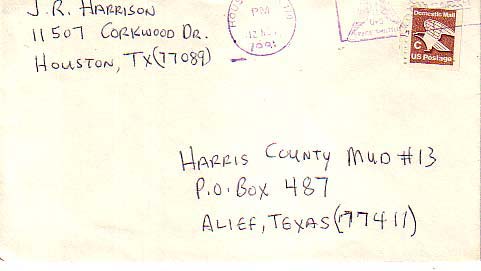 J.R. HARRISON
11507 CORKWOOD DR.
HOUSTON, TX (77089)
PM
1981
Domestic Mail
C
US Postage
HARRIS COUNTY MUD #13
P.O. BOX 487
ALIEF, TEXAS (77411)